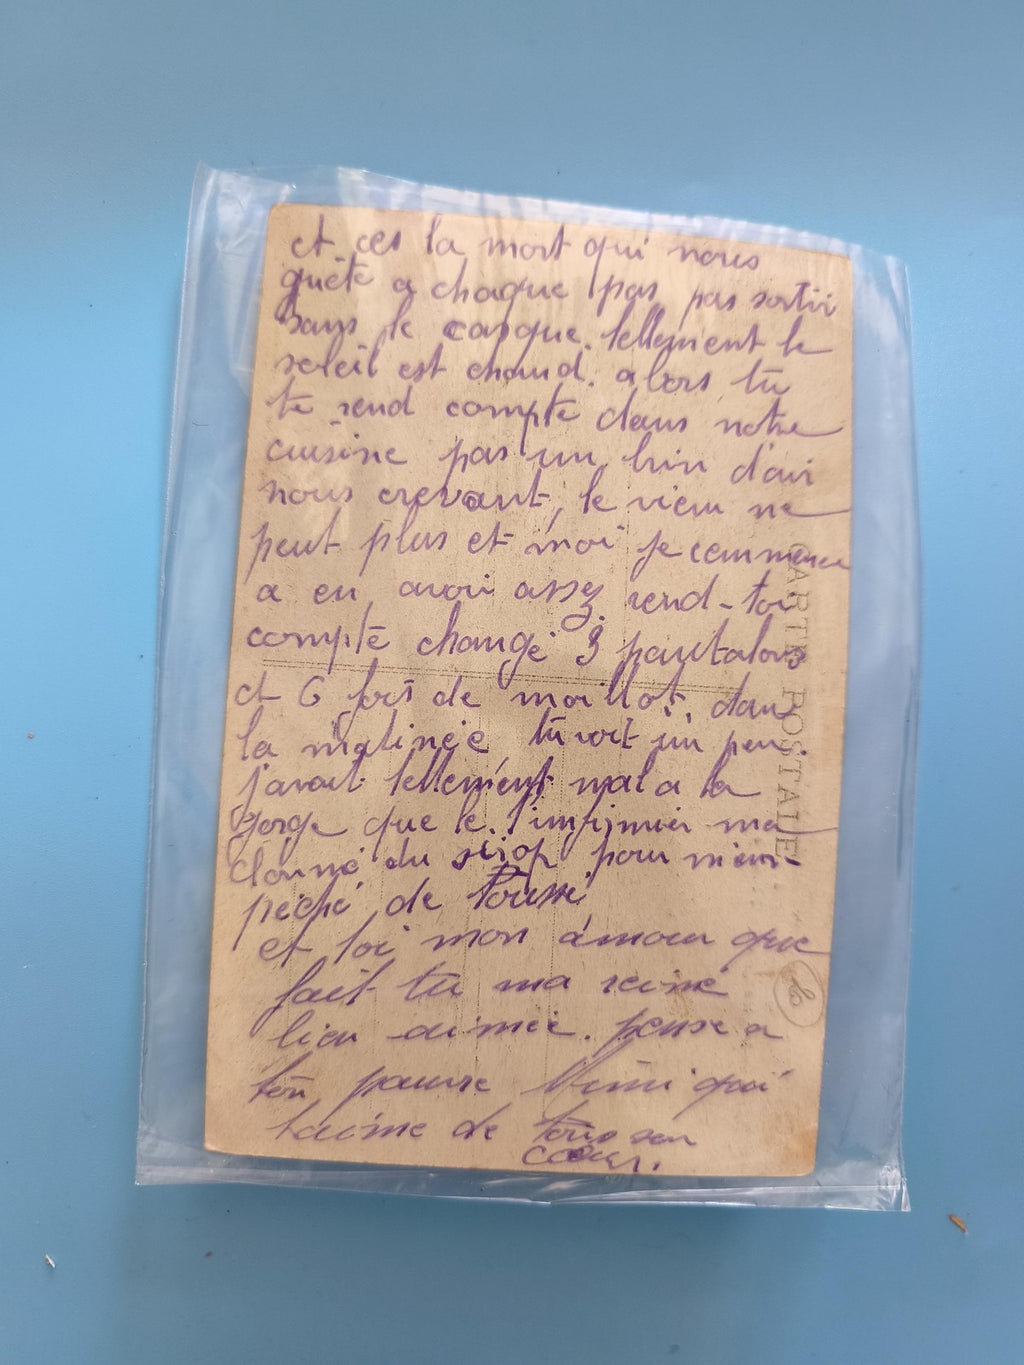 et ces la mort qui nous
guète a chaque pas pas sortir
sans le casque. tellement le
soleil est chaud. alors tu
te rend compte dans notre
cuisine pas un brin d'air
nous crevant, le vieu ne
peut plus et moi je commence
a en avoir assez rend-toi
compte changé 3 pantalons
et 6 fois de maillot dans
la matinée tu voit un peu
j'avait tellement mal a la
gorge que le l'infirmier ma
donné du sirop pour m'em-
pêché de Toussé
et toi mon amour que
fait tu ma reine
bien aimée. pense a
ton pauvre Mimi qui
t'aime de tous son
cœur.
CARTE POSTALE